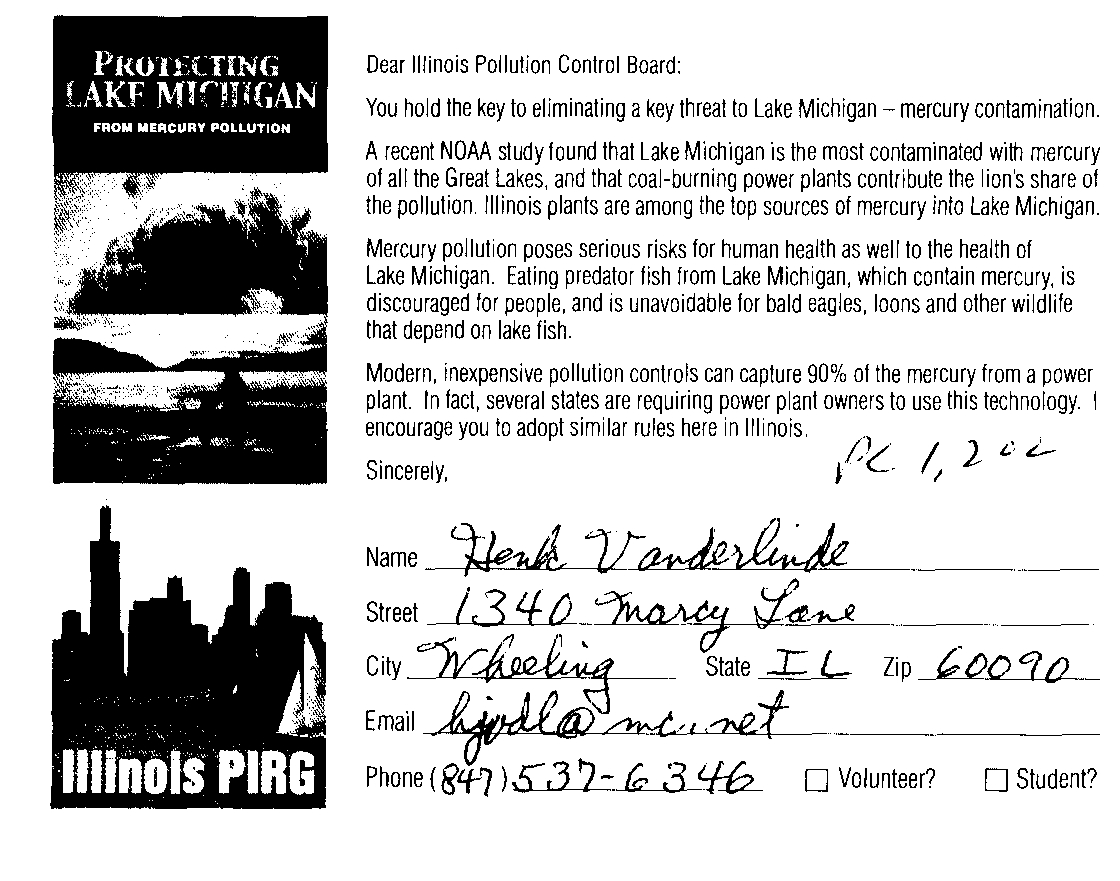 PROTECTING
LAKE MICHIGAN
FROM MERCURY POLLUTION
Illinois PIRG
Dear Illinois Pollution Control Board:
You hold the key to eliminating a key threat to Lake Michigan – mercury contamination.
A recent NOAA study found that Lake Michigan is the most contaminated with mercury
of all the Great Lakes, and that coal-burning power plants contribute the lion's share of
the pollution. Illinois plants are among the top sources of mercury into Lake Michigan.
Mercury pollution poses serious risks for human health as well to the health of
Lake Michigan. Eating predator fish from Lake Michigan, which contain mercury, is
discouraged for people, and is unavoidable for bald eagles, loons and other wildlife
that depend on lake fish.
Modern, inexpensive pollution controls can capture 90% of the mercury from a power
plant. In fact, several states are requiring power plant owners to use this technology. I
encourage you to adopt similar rules here in Illinois.
Sincerely,
PC
Name Henk Vanderlinde
Street 1340 Marcy Lane
City Wheeling State IL Zip 60090
Email
Phone (847) 537-6346 Volunteer? Student?